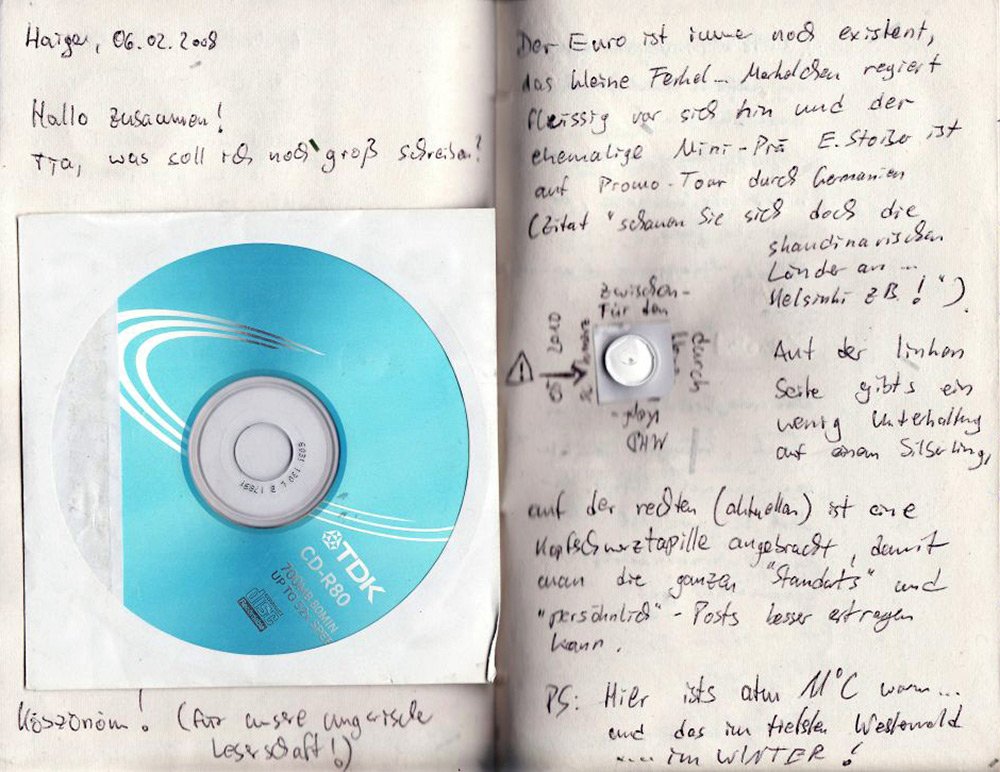 Haiger, 06.02.2008
Hallo zusammen!
Tja, was soll ich noch groß schreiben?
TDK
CD-R80
700MB 80MIN
UP TO 52X SPEED
COMPACT
disc
Recordable
Köszönöm! (für unsere ungarische
Leserschaft!)
Der Euro ist immer noch existent,
das kleine Ferkel - Merkelchen regiert
fleissig vor sich hin und der
ehemalige Mini-Prä E. Stoiber ist
auf Promo-Tour durch Germanien
(Zitat "schauen Sie sich doch die
skandinavischen
Länder an ...
Helsinki z.B.!")
Zwischen-
Für den
durch
2010
Auf der linken
Seite gibts ein
wenig Unterhaltung
auf einem Silberling,
auf der rechten (aktuellen) ist eine
Kopfschmerztapille angebracht, damit
man die ganzen "Standarts" und
"persönlich" - Posts besser ertragen
kann.
PS: Hier ists atm 11°C warm...
und das im tiefsten Westerwald
.... im WINTER!